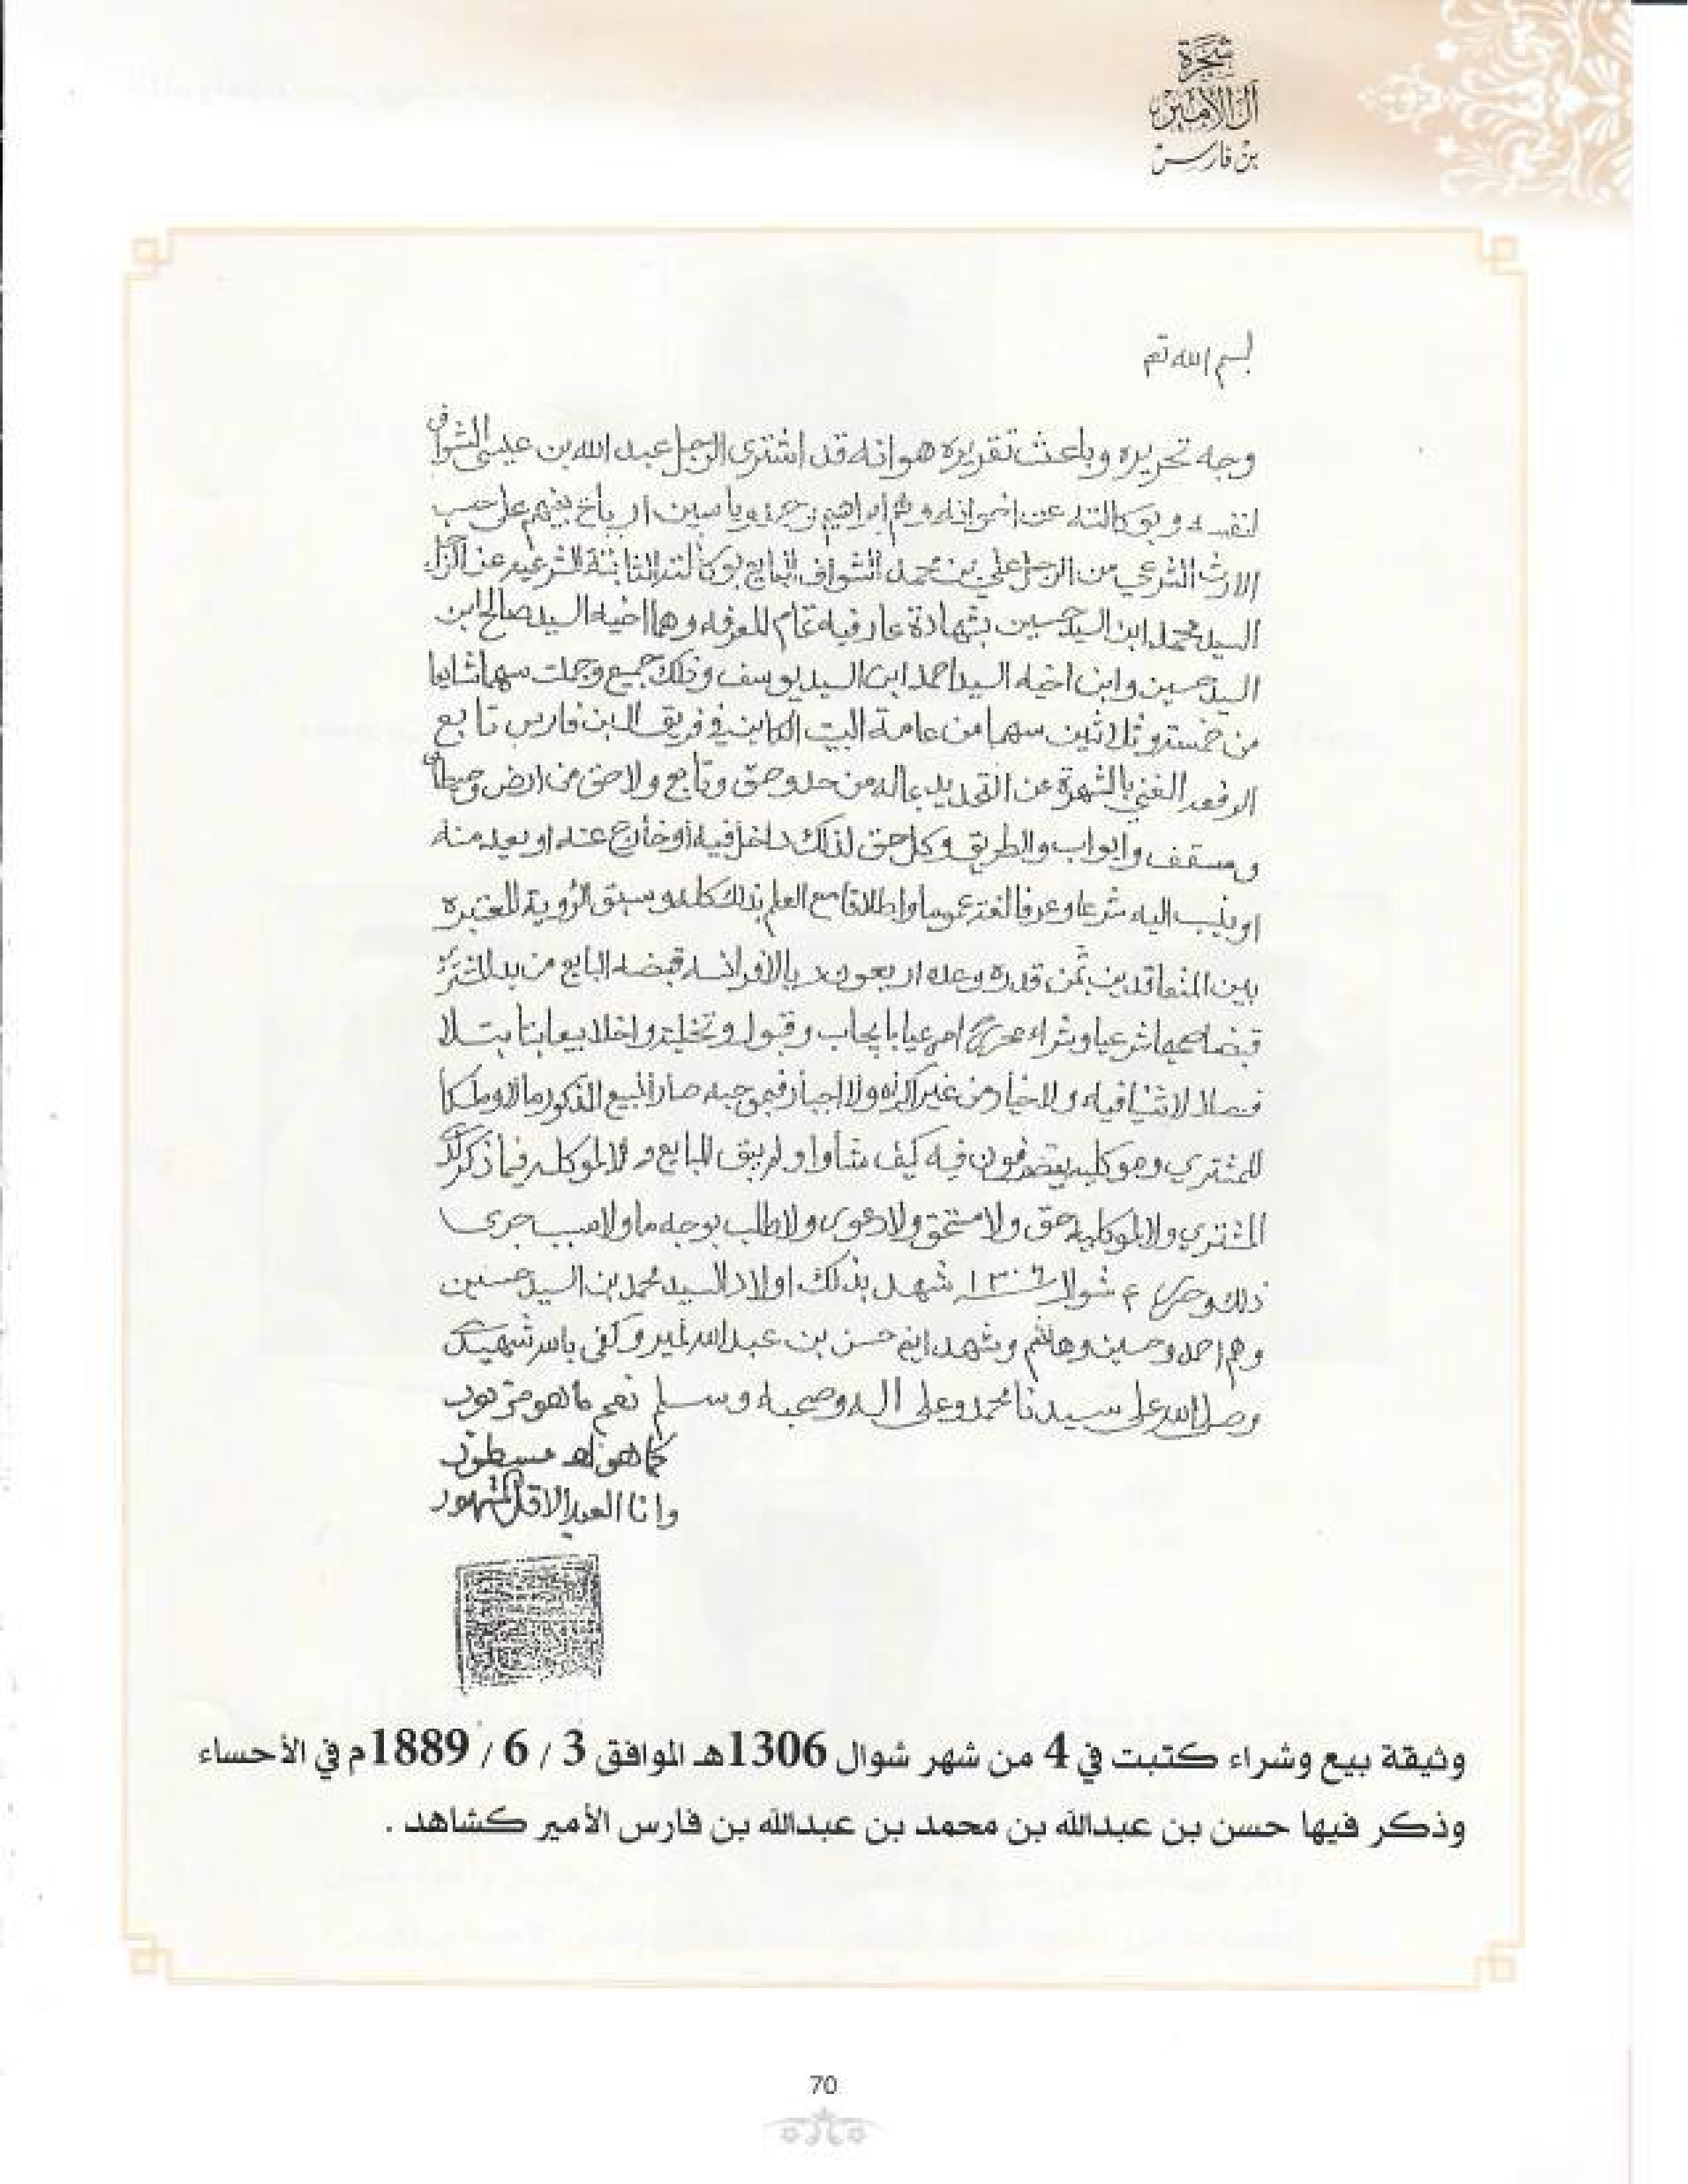 شجرة
آل الأمير
بن فارس
بسم الله تع
وجه تحريره وباعث تقريره هو انه قد اشترى الرجل عبد الله بن عيسى الشواف
لنفسه و بوكالته عن اخوانه وهم ابراهيم وياسين على حسب
الارث الشرعي من الرجل علي بن محمد الشواف البايع بوكالته الثابتة الشرعيه عن
السيد محمد ابن السيد حسين بشهادة عارفيه تمام المعرفه وهما اخيه السيد صالح ابن
السيد حسين وابن اخيه السيد احمد ابن السيد يوسف وذلك جميع وجملت سهما شايعا
من خمسة وثلاثين سهما من عامة البيت الكاين في فريق ال بن فارس تابع
الرفعه الغني بالشهرة عن التحديد بماله من حد وحق وتابع ولاحق من ارض وحيطان
ومسقف وابواب والطريق وكل حق لذلك داخل فيه أو خارج عنه او بعيد منه
او ينسب اليه شرعا وعرفا لغة عموما واطلاقا مع العلم بذلك كله وسبق الرؤية المعتبره
بين المتعاقدين بثمن قدره وعده اربعون ريالا فرانسه قبضه البايع من يد المشتري
قبضا شرعيا وشراء مرعيا بايجاب وقبول وتخلية واخلا بيعا بتا بتلا
فصلا لا ثنيا فيه ولا خيار من غير اكراه ولا اجبار فبموجبه صار المبيع المذكور مالا وملكا
للمشتري وموكليه يتصرفون فيه كيف شأوا ولم يبق للبايع ولا لموكله فيما ذكر
المشتري ولا لموكليه حق ولا مستحق ولا دعوى ولا طلب بوجه ما ولا سبب جرى
ذلك وحرر ٤ شوال ١٣٠٦ شهد بذلك اولاد السيد محمد بن السيد حسين
وهم احمد وحسين وهاشم وشهد ايض حسن بن عبد الله وكفى بالله شهيدا
وصلى الله على سيدنا محمد وعلى اله وصحبه وسلم نعم ما هو مزبور
كما هو مسطور
وانا العبد الاقل
وثيقة بيع وشراء كتبت في 4 من شهر شوال 1306هـ الموافق 3 / 6 / 1889م في الأحساء
وذكر فيها حسن بن عبدالله بن محمد بن عبدالله بن فارس الأمير كشاهد .
70